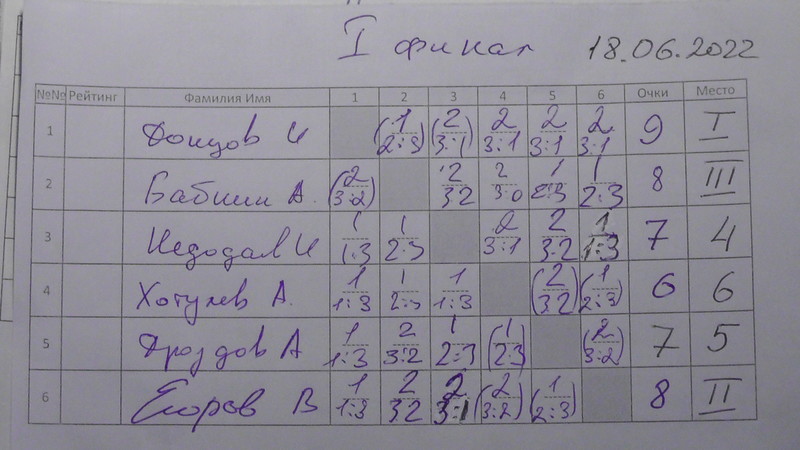 I финал 18.06.2022
№№ Рейтинг Фамилия Имя 1 2 3 4 5 6 Очки Место
1 Донцов И (1 2:3) (2 3:1) 2 3:1 2 3:1 2 3:1 9 I
2 Бабкин А. (2 3:2) 2 32 2 3:0 1 2:3 1 2:3 8 III
3 Недодал И 1 1:3 1 2:3 2 3:1 2 3:2 1 1:3 7 4
4 Хотулев А. 1 1:3 1 2:3 1 1:3 (2 32) (1 2:3) 6 6
5 Дроздов А 1 1:3 2 3:2 1 2:3 (1 2:3) (2 3:2) 7 5
6 Егоров В 1 1:3 2 32 2 3:1 (2 3:2) (1 2:3) 8 II